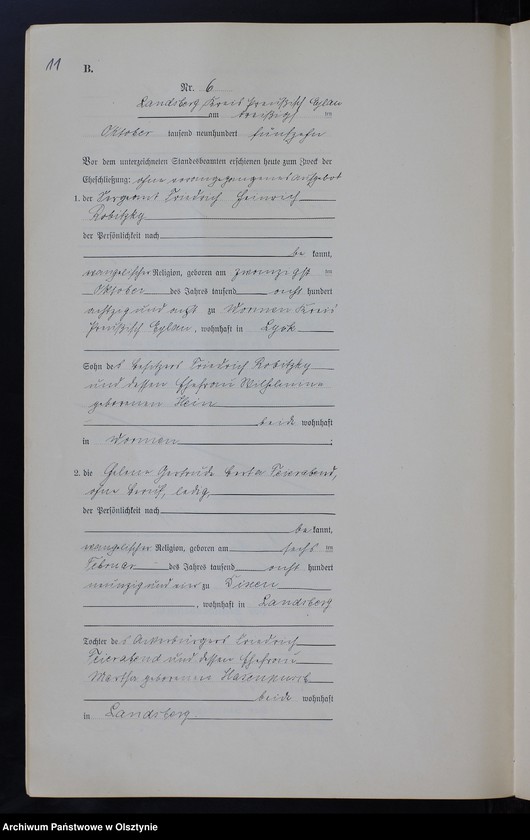 11
B.
Nr. 6
Landsberg Kreis Preußisch Eylau
am dreißigsten
Oktober tausend neunhundert fünfzehn
Vor dem unterzeichneten Standesbeamten erschienen heute zum Zweck der
Eheschließung: ohne vorangegangenes Aufgebot
1. der Sergeant Friedrich Heinrich
Robitzky
der Persönlichkeit nach
be kannt,
evangelischer Religion, geboren am zwanzigsten
Oktober des Jahres tausend acht hundert
achtzig und acht zu Wormen Kreis
Preußisch Eylau, wohnhaft in Lyck
Sohn des Besitzers Friedrich Robitzky
und dessen Ehefrau Wilhelmine
geborenen Hein
beide wohnhaft
in Wormen;
2. die Helene Gertrude Berta Feierabend,
ohne Beruf, ledig,
der Persönlichkeit nach
be kannt,
evangelischer Religion, geboren am sechsten
Februar des Jahres tausend acht hundert
neunzig und vier zu Dixen
, wohnhaft in Landsberg
Tochter des Ackerbürgers
Feierabend und dessen Ehefrau
Martha geborenen
beide wohnhaft
in Landsberg.
Archiwum Państwowe w Olsztynie